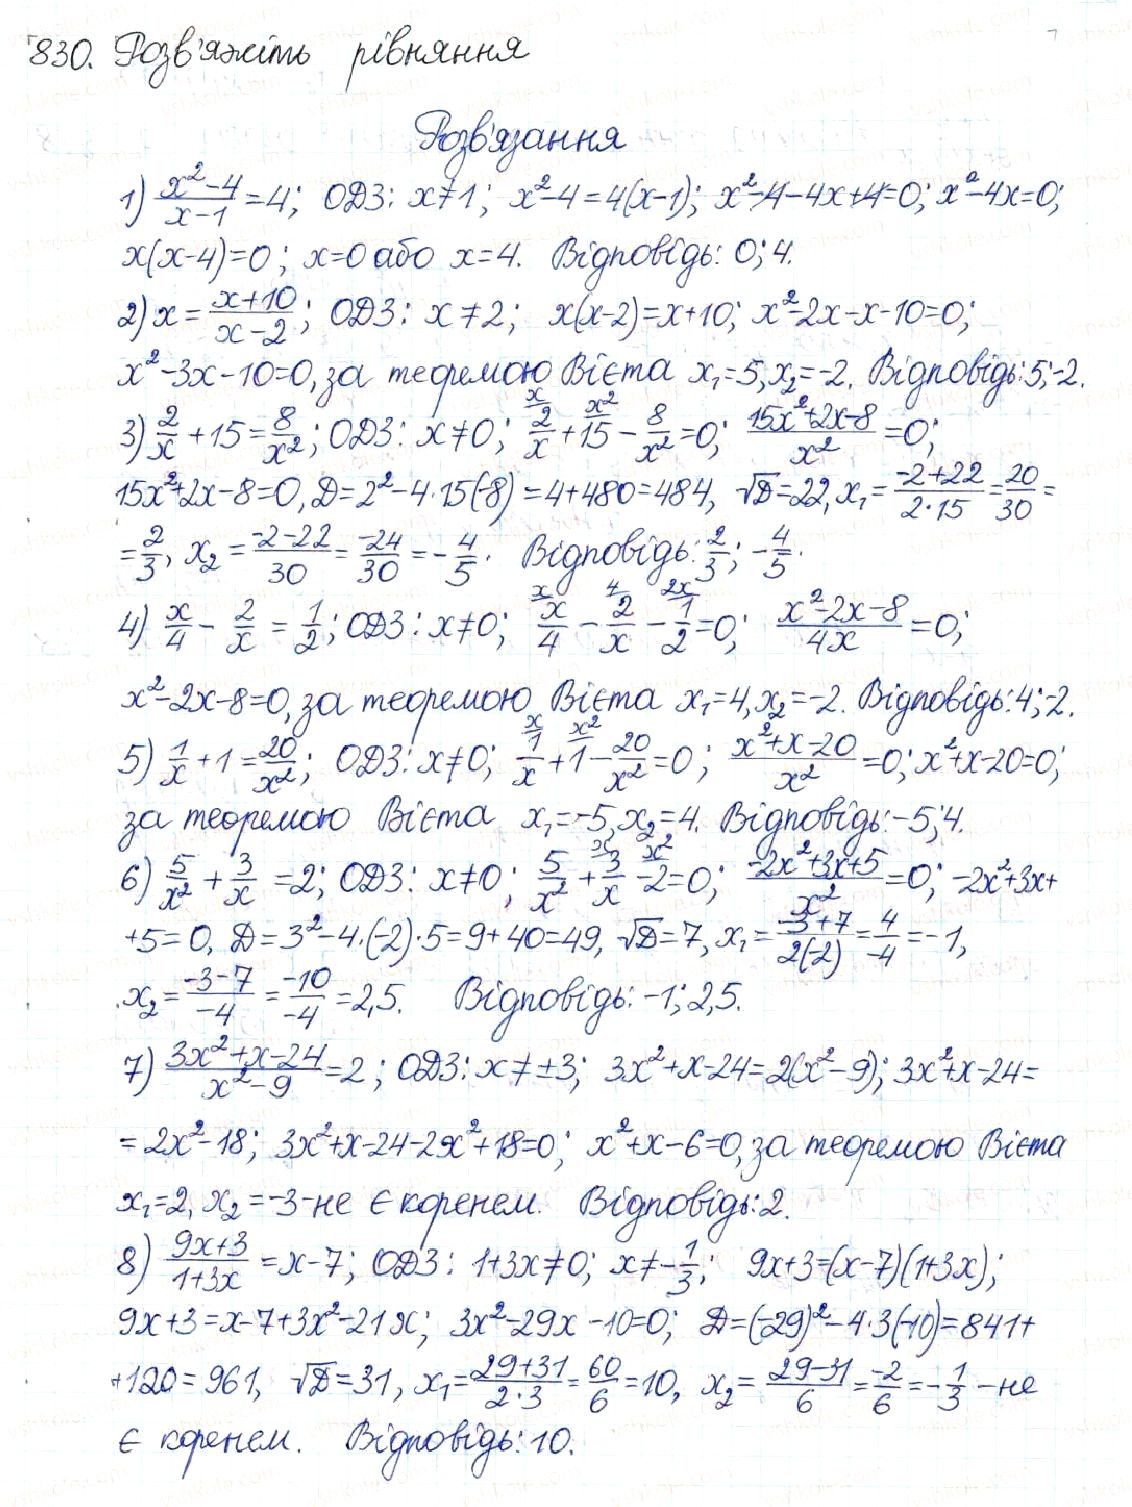 830. Розв'яжіть рівняння
Розв'язання
1) (x²-4)/(x-1)=4; ОДЗ: x≠1; x²-4=4(x-1); x²-4-4x+4=0; x²-4x=0;
x(x-4)=0; x=0 або x=4. Відповідь: 0; 4.
2) x=(x+10)/(x-2); ОДЗ: x≠2; x(x-2)=x+10; x²-2x-x-10=0;
x²-3x-10=0, за теоремою Вієта x₁=5, x₂=-2. Відповідь: 5; -2.
3) 2/x+15=8/x²; ОДЗ: x≠0; ˣ/2/x+ˣ²/15-8/x²=0; (15x²+2x-8)/x²=0;
15x²+2x-8=0, D=2²-4·15(-8)=4+480=484, √D=22, x₁=(-2+22)/(2·15)=20/30=
=2/3, x₂=(-2-22)/30=-24/30=-4/5. Відповідь: 2/3; -4/5.
4) x/4-2/x=1/2; ОДЗ: x≠0; ˣ/x/4-⁴/2/x-²ˣ/1/2=0; (x²-2x-8)/4x=0;
x²-2x-8=0, за теоремою Вієта x₁=4, x₂=-2. Відповідь: 4; -2.
5) 1/x+1=20/x²; ОДЗ: x≠0; ˣ/1/x+ˣ²/1-20/x²=0; (x²+x-20)/x²=0; x²+x-20=0;
за теоремою Вієта x₁=-5, x₂=4. Відповідь: -5; 4.
6) 5/x²+3/x=2; ОДЗ: x≠0; 5/x²+ˣ/3/x-ˣ²/2=0; (-2x²+3x+5)/x²=0; -2x²+3x+
+5=0, D=3²-4·(-2)·5=9+40=49, √D=7, x₁=(-3+7)/(2(-2))=4/-4=-1,
x₂=(-3-7)/-4=-10/-4=2,5. Відповідь: -1; 2,5.
7) (3x²+x-24)/(x²-9)=2; ОДЗ: x≠±3; 3x²+x-24=2(x²-9); 3x²+x-24=
=2x²-18; 3x²+x-24-2x²+18=0; x²+x-6=0, за теоремою Вієта
x₁=2, x₂=-3-не є коренем. Відповідь: 2.
8) (9x+3)/(1+3x)=x-7; ОДЗ: 1+3x≠0; x≠-1/3; 9x+3=(x-7)(1+3x);
9x+3=x-7+3x²-21x; 3x²-29x-10=0; D=(-29)²-4·3(-10)=841+
+120=961, √D=31, x₁=(29+31)/(2·3)=60/6=10, x₂=(29-31)/6=-2/6=-1/3-не
є коренем. Відповідь: 10.